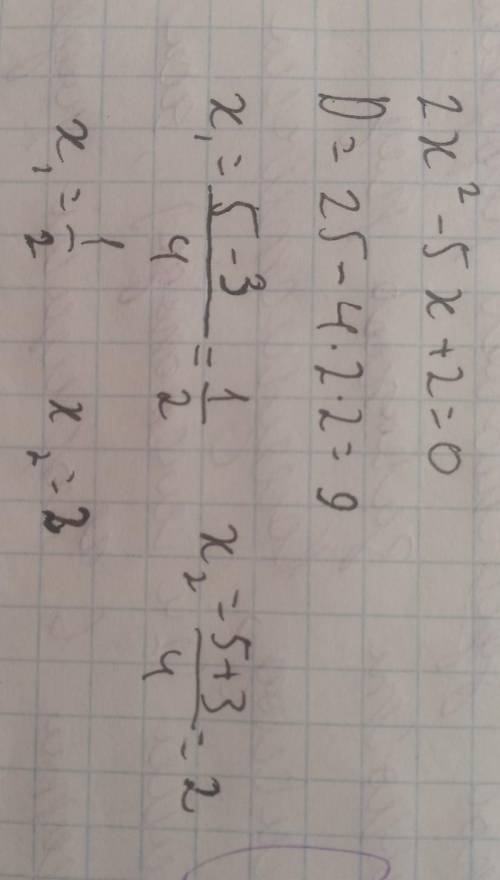 2x² - 5x + 2 = 0
D = 25 - 4·2·2 = 9
x₁ = (5 - 3)/4 = 1/2   x₂ = (5 + 3)/4 = 2
x₁ = 1/2   x₂ =